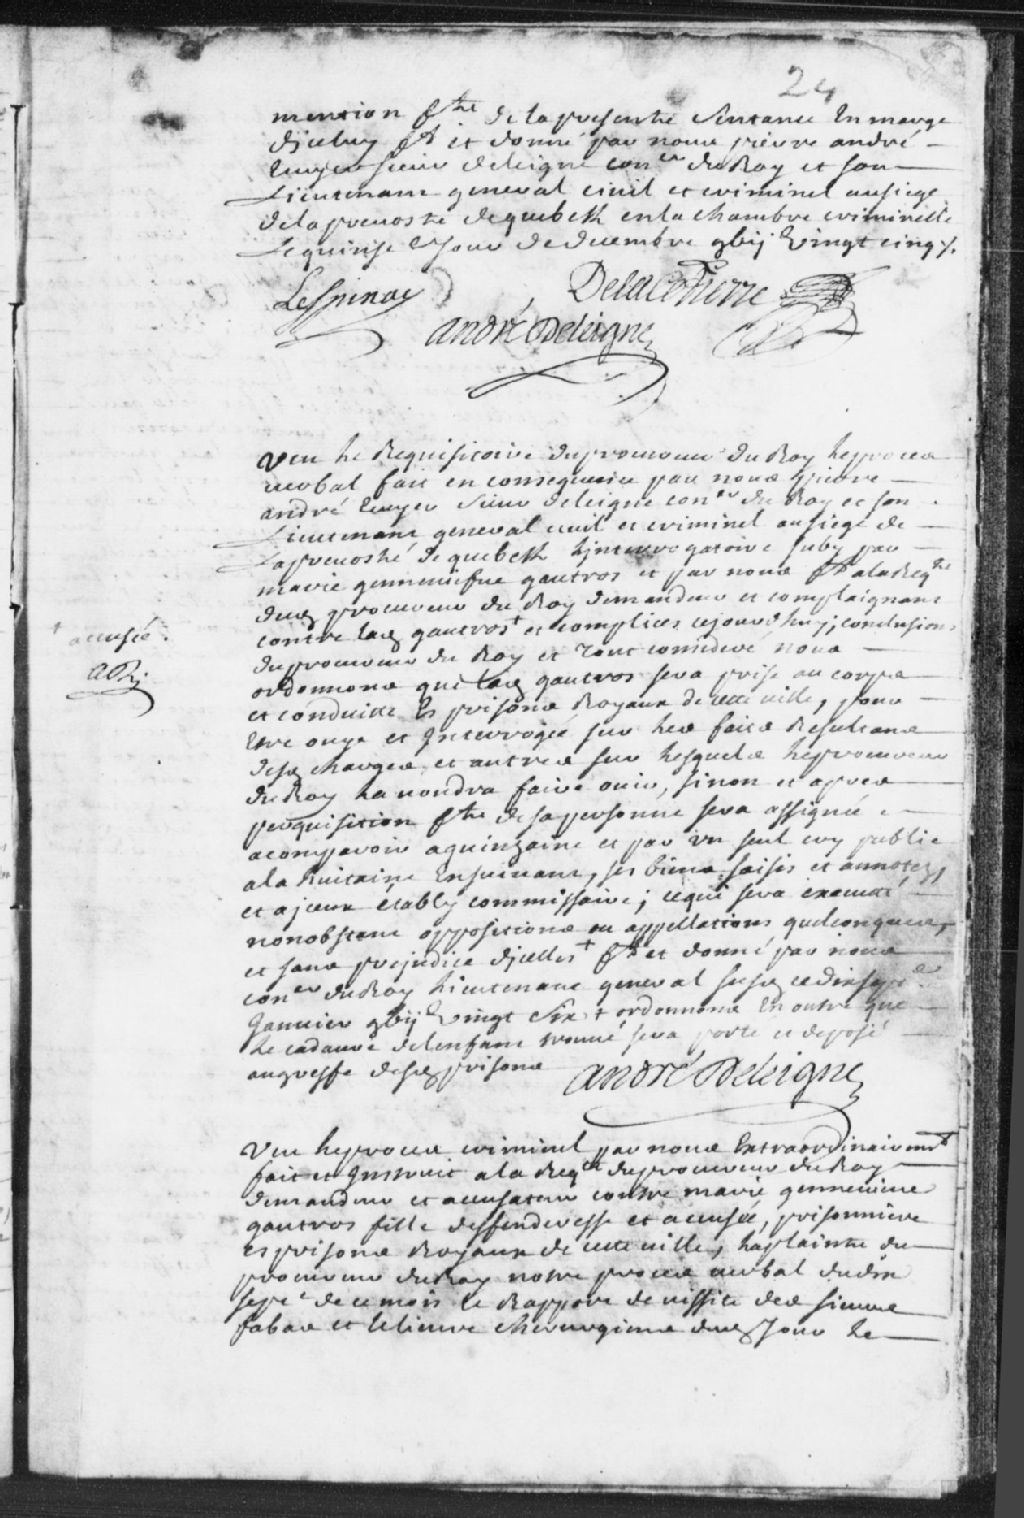 24
mention f.te de la presente Sentance En marge
djceluy ft et donné par nous pierre andré
Ecuyer sieur deleigne con.er du Roy et son
Lieutenant general ciuil et criminel au siege
de la preuosté de quebek en la chambre criminelle
Le quinse.e Jour de decembre gbij.c vingt cinq ./.
LeSpinay DelaCetiere
André Deleigne
Veu le Requisitoire du procureur du Roy le proces
uerbal fait en consequence par nous pierre
andré Ecuyer Sieur deleigne con.er du Roy et son
Lieutenant general ciuil et criminel au siege de
La preuosté de quebek linterrogatoire suby par
marie genneuiefue gautros et par nous ft a la Req.te
dud procureur du Roy demandeur et complaignant
contre lad gautros + et complices cejourdhuy; conclusions
+ accusée
ADL.
du procureur du Roy et tout consideré nous
ordonnons que lad gautros sera prise au corps
et conduitte Es prisons Royaux de cette ville, pour
Etre ouye et Interrogée sur les faits Resultans
desd charges et autres sur lesquels le procureur
du Roy la voudra faire ouir, sinon et apres
perquisition f.te de sa personne sera assignée
a comparoir a quinzaine et par vn seul cry public
a la huitaine Ensuivant, ses biens saisis et annotez,
et a jceux étably commissaire; ce qui sera executé
nonobstant oppositions ou appellations quelconques,
et sans prejudice djcelles + ft et donné par nous
con.er du Roy Lieutenant general susd ce dix sept.e
Januier gbij.c vingt Six + ordonnons En outre que
le cadaure de lenfant trouué sera porté et deposé
au greffe desd prisons André Deleigne
Veu le proces criminel par nous Extraordinairem.t
fait et Instruit a la Req.te du procureur du Roy
demandeur et accusateur contre marie genneuieue
gautros fille deffenderesse et accusée, prisonniere
es prisons Royaux de cette ville, la plainte du
procureur du Roy notre proces uerbal du dix
sept.e de ce mois le Rapport de vissite des sieurs
fabas et Lelieure chirurgiens dud Jour le